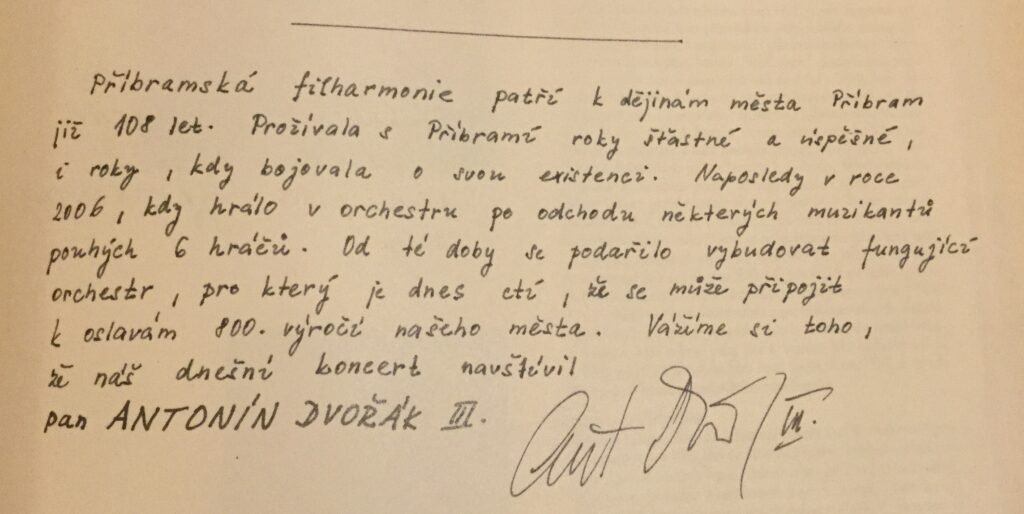 Příbramská filharmonie patří k dějinám města Příbram
již 108 let. Prožívala s Příbramí roky šťastné a úspěšné,
i roky, kdy bojovala o svou existenci. Naposledy v roce
2006, kdy hrálo v orchestru po odchodu některých muzikantů
pouhých 6 hráčů. Od té doby se podařilo vybudovat fungující
orchestr, pro který je dnes ctí, že se může připojit
k oslavám 800. výročí našeho města. Vážíme si toho,
že náš dnešní koncert navštívil
pan ANTONÍN DVOŘÁK III.
Ant Dvř III.